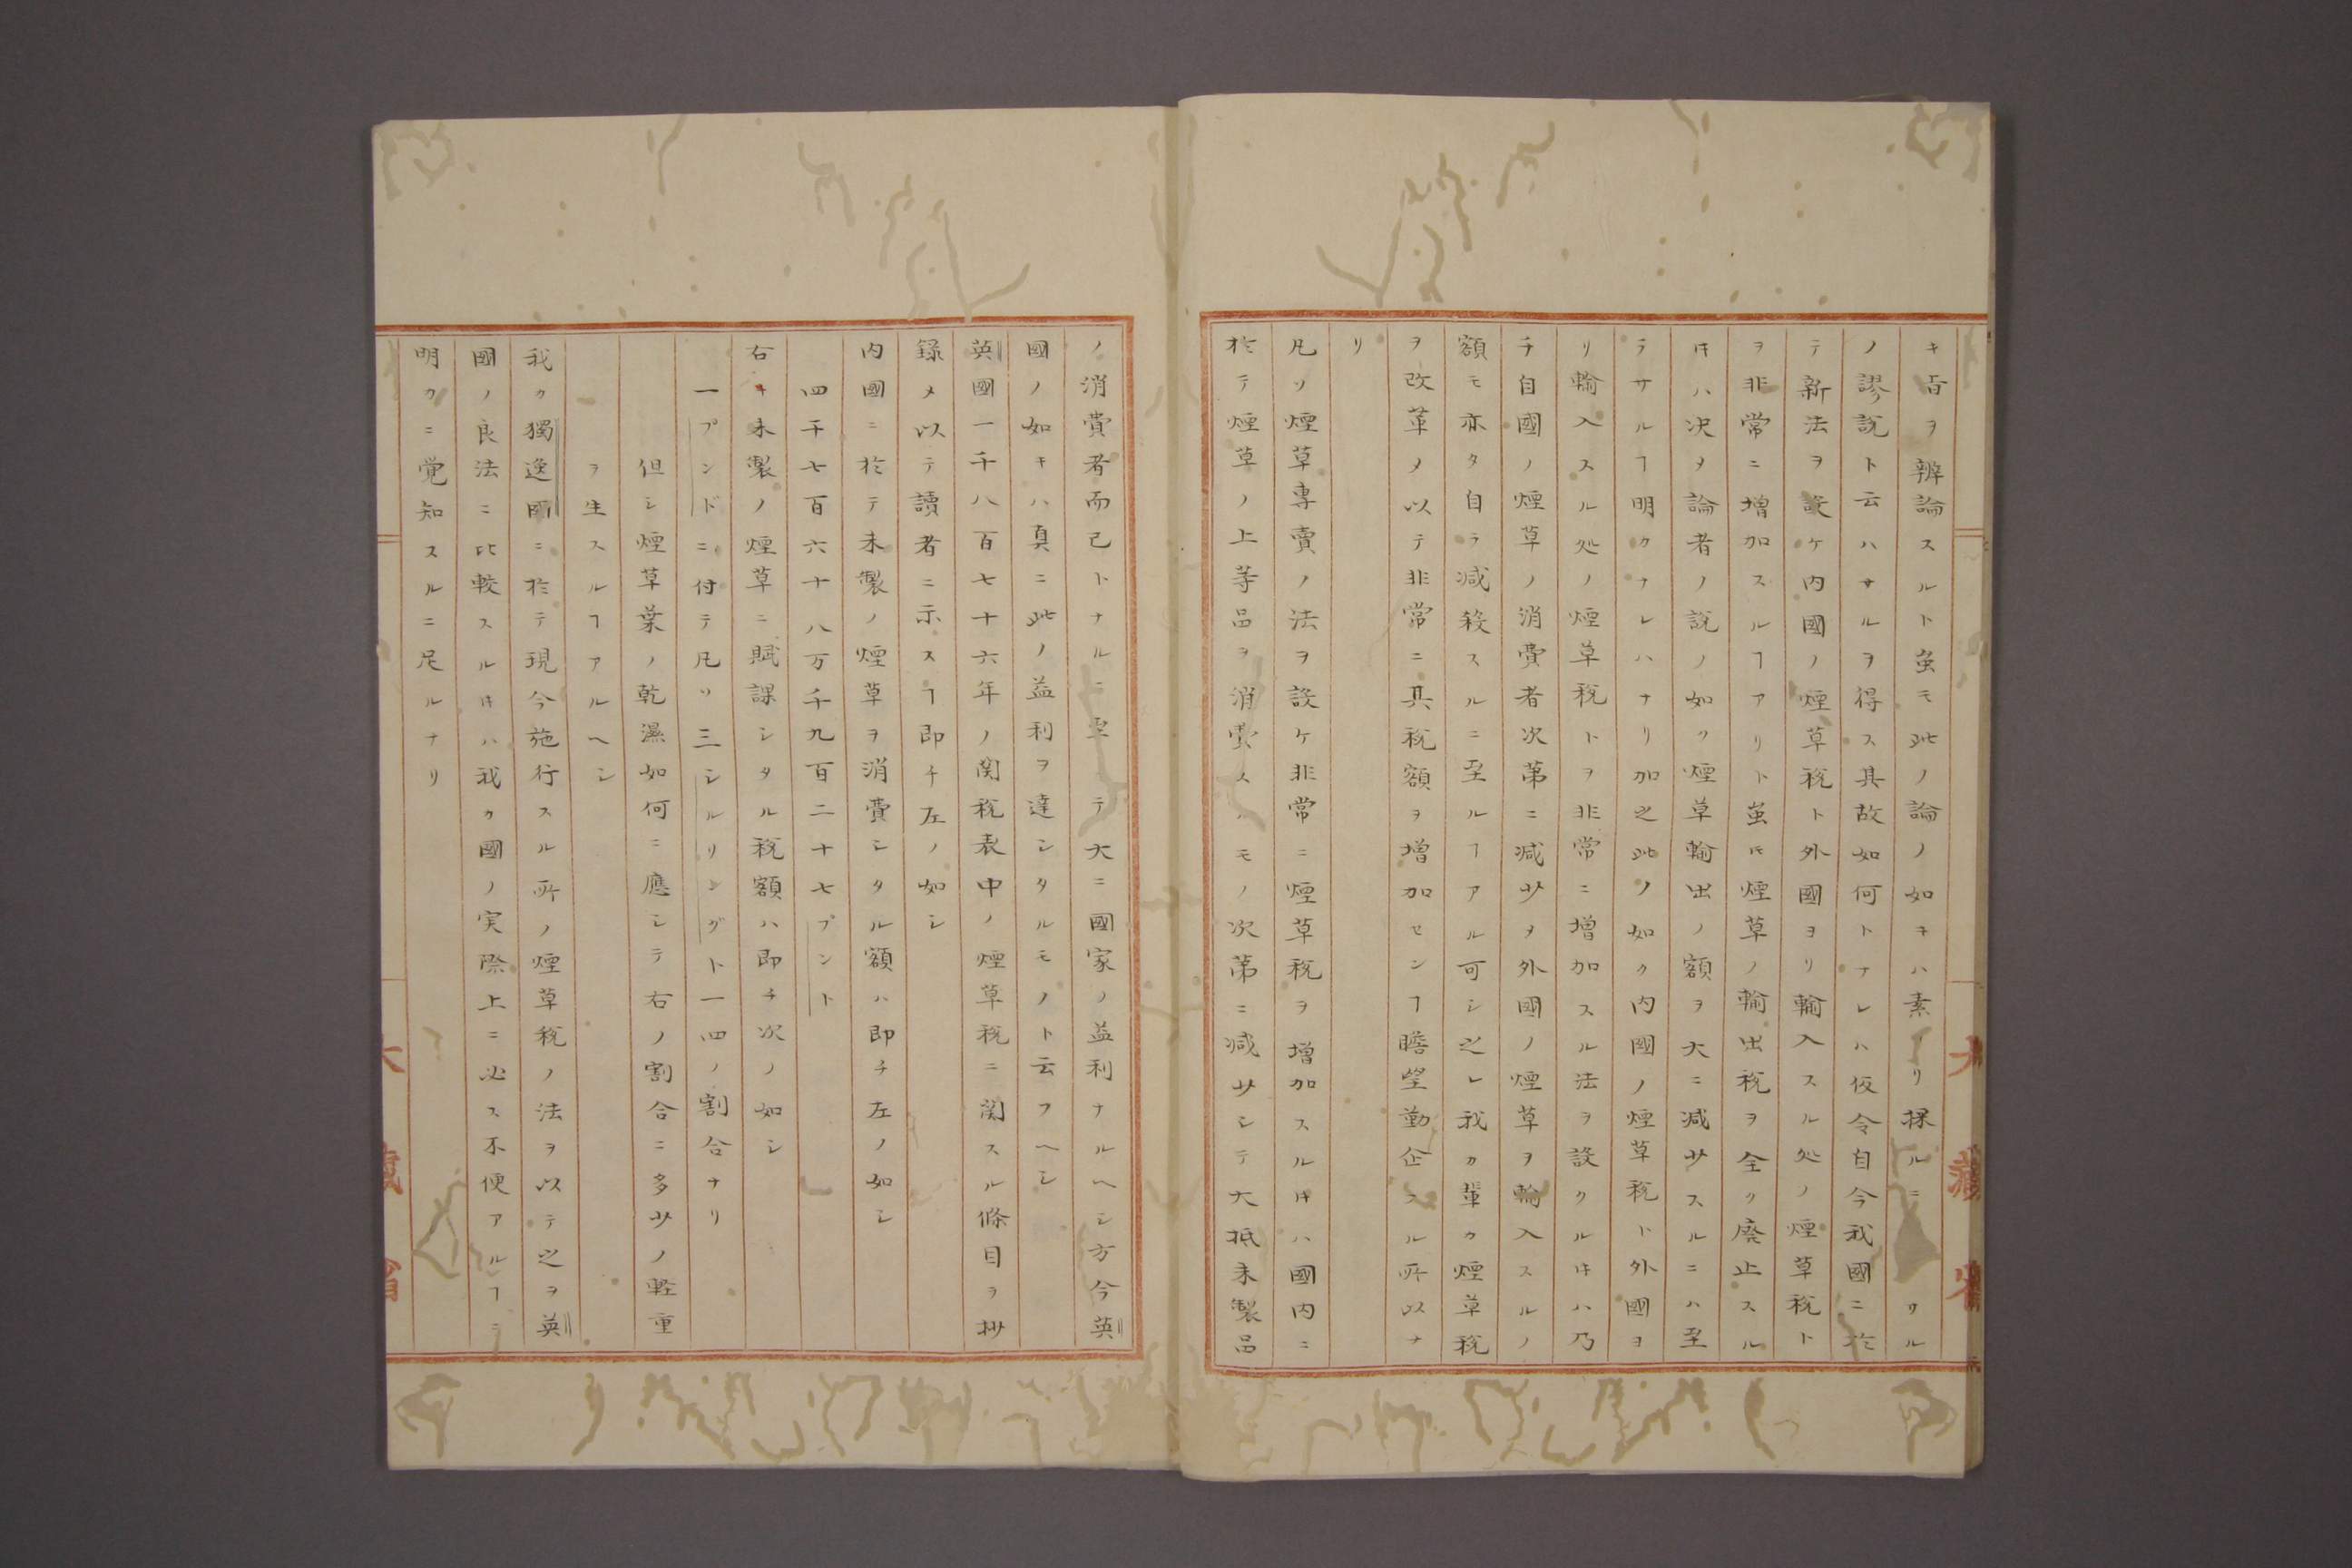 キ旨ヲ辨論スルト虽モ此ノ論ノ如キハ素ヨリ採ルニ ワル
ノ謬説ト云ハサルヲ得ス其故如何トナレハ仮令自今我國ニ於
テ新法ヲ設ケ内國ノ煙草税ト外國ヨリ輸入スル処ノ煙草税ト
ヲ非常ニ増加スルヿアリト虽𪜈煙草ノ輸出税ヲ全ク廃止スル
𪜈ハ决〆論者ノ説ノ如ク煙草輸出ノ額ヲ大ニ減少スルニハ至
ラサルヿ明カナレハナリ加之此ノ如ク内國ノ煙草税ト外國ヨ
リ輸入スル処ノ煙草税トヲ非常ニ増加スル法ヲ設クル𪜈ハ乃
チ自國ノ煙草ノ消費者次第ニ減少〆外國ノ煙草ヲ輸入スルノ
額モ亦タ自ラ減殺スルニ至ルヿアル可シ之レ我カ輩カ煙草税
ヲ改革〆以テ非常ニ其税額ヲ増加センヿ瞻望勤企スル所以ナ
リ
凡ソ煙草専賣ノ法ヲ設ケ非常ニ煙草税ヲ増加スル𪜈ハ國内ニ
於テ煙草ノ上等品ヲ消費スルモノ次第ニ減少シテ大抵未製品
ノ消費者而已トナルニ至テ大ニ國家ノ益利ナルヘシ方今英
國ノ如キハ真ニ此ノ益利ヲ達シタルモノト云フヘシ
英國一千八百七十六年ノ関税表中ノ煙草税ニ関スル條目ヲ抄
録〆以テ讀者ニ示スヿ即チ左ノ如シ
内國ニ於テ未製ノ煙草ヲ消費シタル額ハ即チ左ノ如シ
四千七百六十八万千九百二十七プント
右キ未製ノ煙草ニ賦課シタル税額ハ即チ次ノ如シ
一プンドニ付テ凡ソ三シルリングト一四ノ割合ナリ
但シ煙草葉ノ乾濕如何ニ應シテ右ノ割合ニ多少ノ軽重
ヲ生スルヿアルヘシ
我カ獨逸國ニ於テ現今施行スル所ノ煙草税ノ法ヲ以テ之ヲ英
國ノ良法ニ比較スル𪜈ハ我カ國ノ実際上ニ必ス不便アルヿニ
明カニ覚知スルニ足ルナリ
大藏省
大藏省